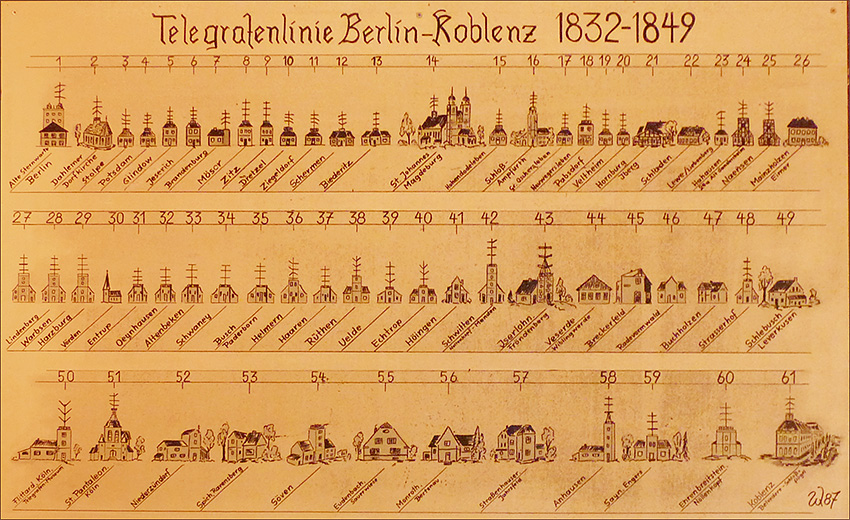 Telegrafenlinie Berlin-Koblenz 1832-1849
1 2 3 4 5 6 7 8 9 10 11 12 13 14 15 16 17 18 19 20 21 22 23 24 25 26
Alte Sternwarte
Berlin
Dahlemer
Dorfkirche
Stolpe
Potsdam
Glindow
Jeserich
Brandenburg
Mösor
Zitz
Dretzel
Ziegelsdorf
Schermen
Biederitz
St. Johannes
Magdeburg
Hohendodeleben
Schloß
Ampfurth
Gr. Quenstedt
Pabsdorf
Veltheim
Hornburg
Jburg
Schladen
Naensen
Mainzholzen
Eimer
27 28 29 30 31 32 33 34 35 36 37 38 39 40 41 42 43 44 45 46 47 48 49
Lindenberg
Warbsen
Harzburg
Vörden
Entrup
Oeynhausen
Altenbeken
Schwaney
Busch
Paderborn
Helmern
Haaren
Rüthen
Uelde
Echtrop
Höingen
Schwitten
Jserlohn
Fröndenberg
Veserde
Wiblingwerde
Breckerfeld
Radevormwald
Buchholzen
Strasserhof
Schlebusch
Leverkusen
50 51 52 53 54 55 56 57 58 59 60 61
Flittard, Köln
St. Pantaleon
Köln
Niederzündorf
Spich
Söven
Eudenbach
Manroth
Straßenhausen
Anhausen
Sayn, Engers
Ehrenbreitstein
Koblenz
W.87